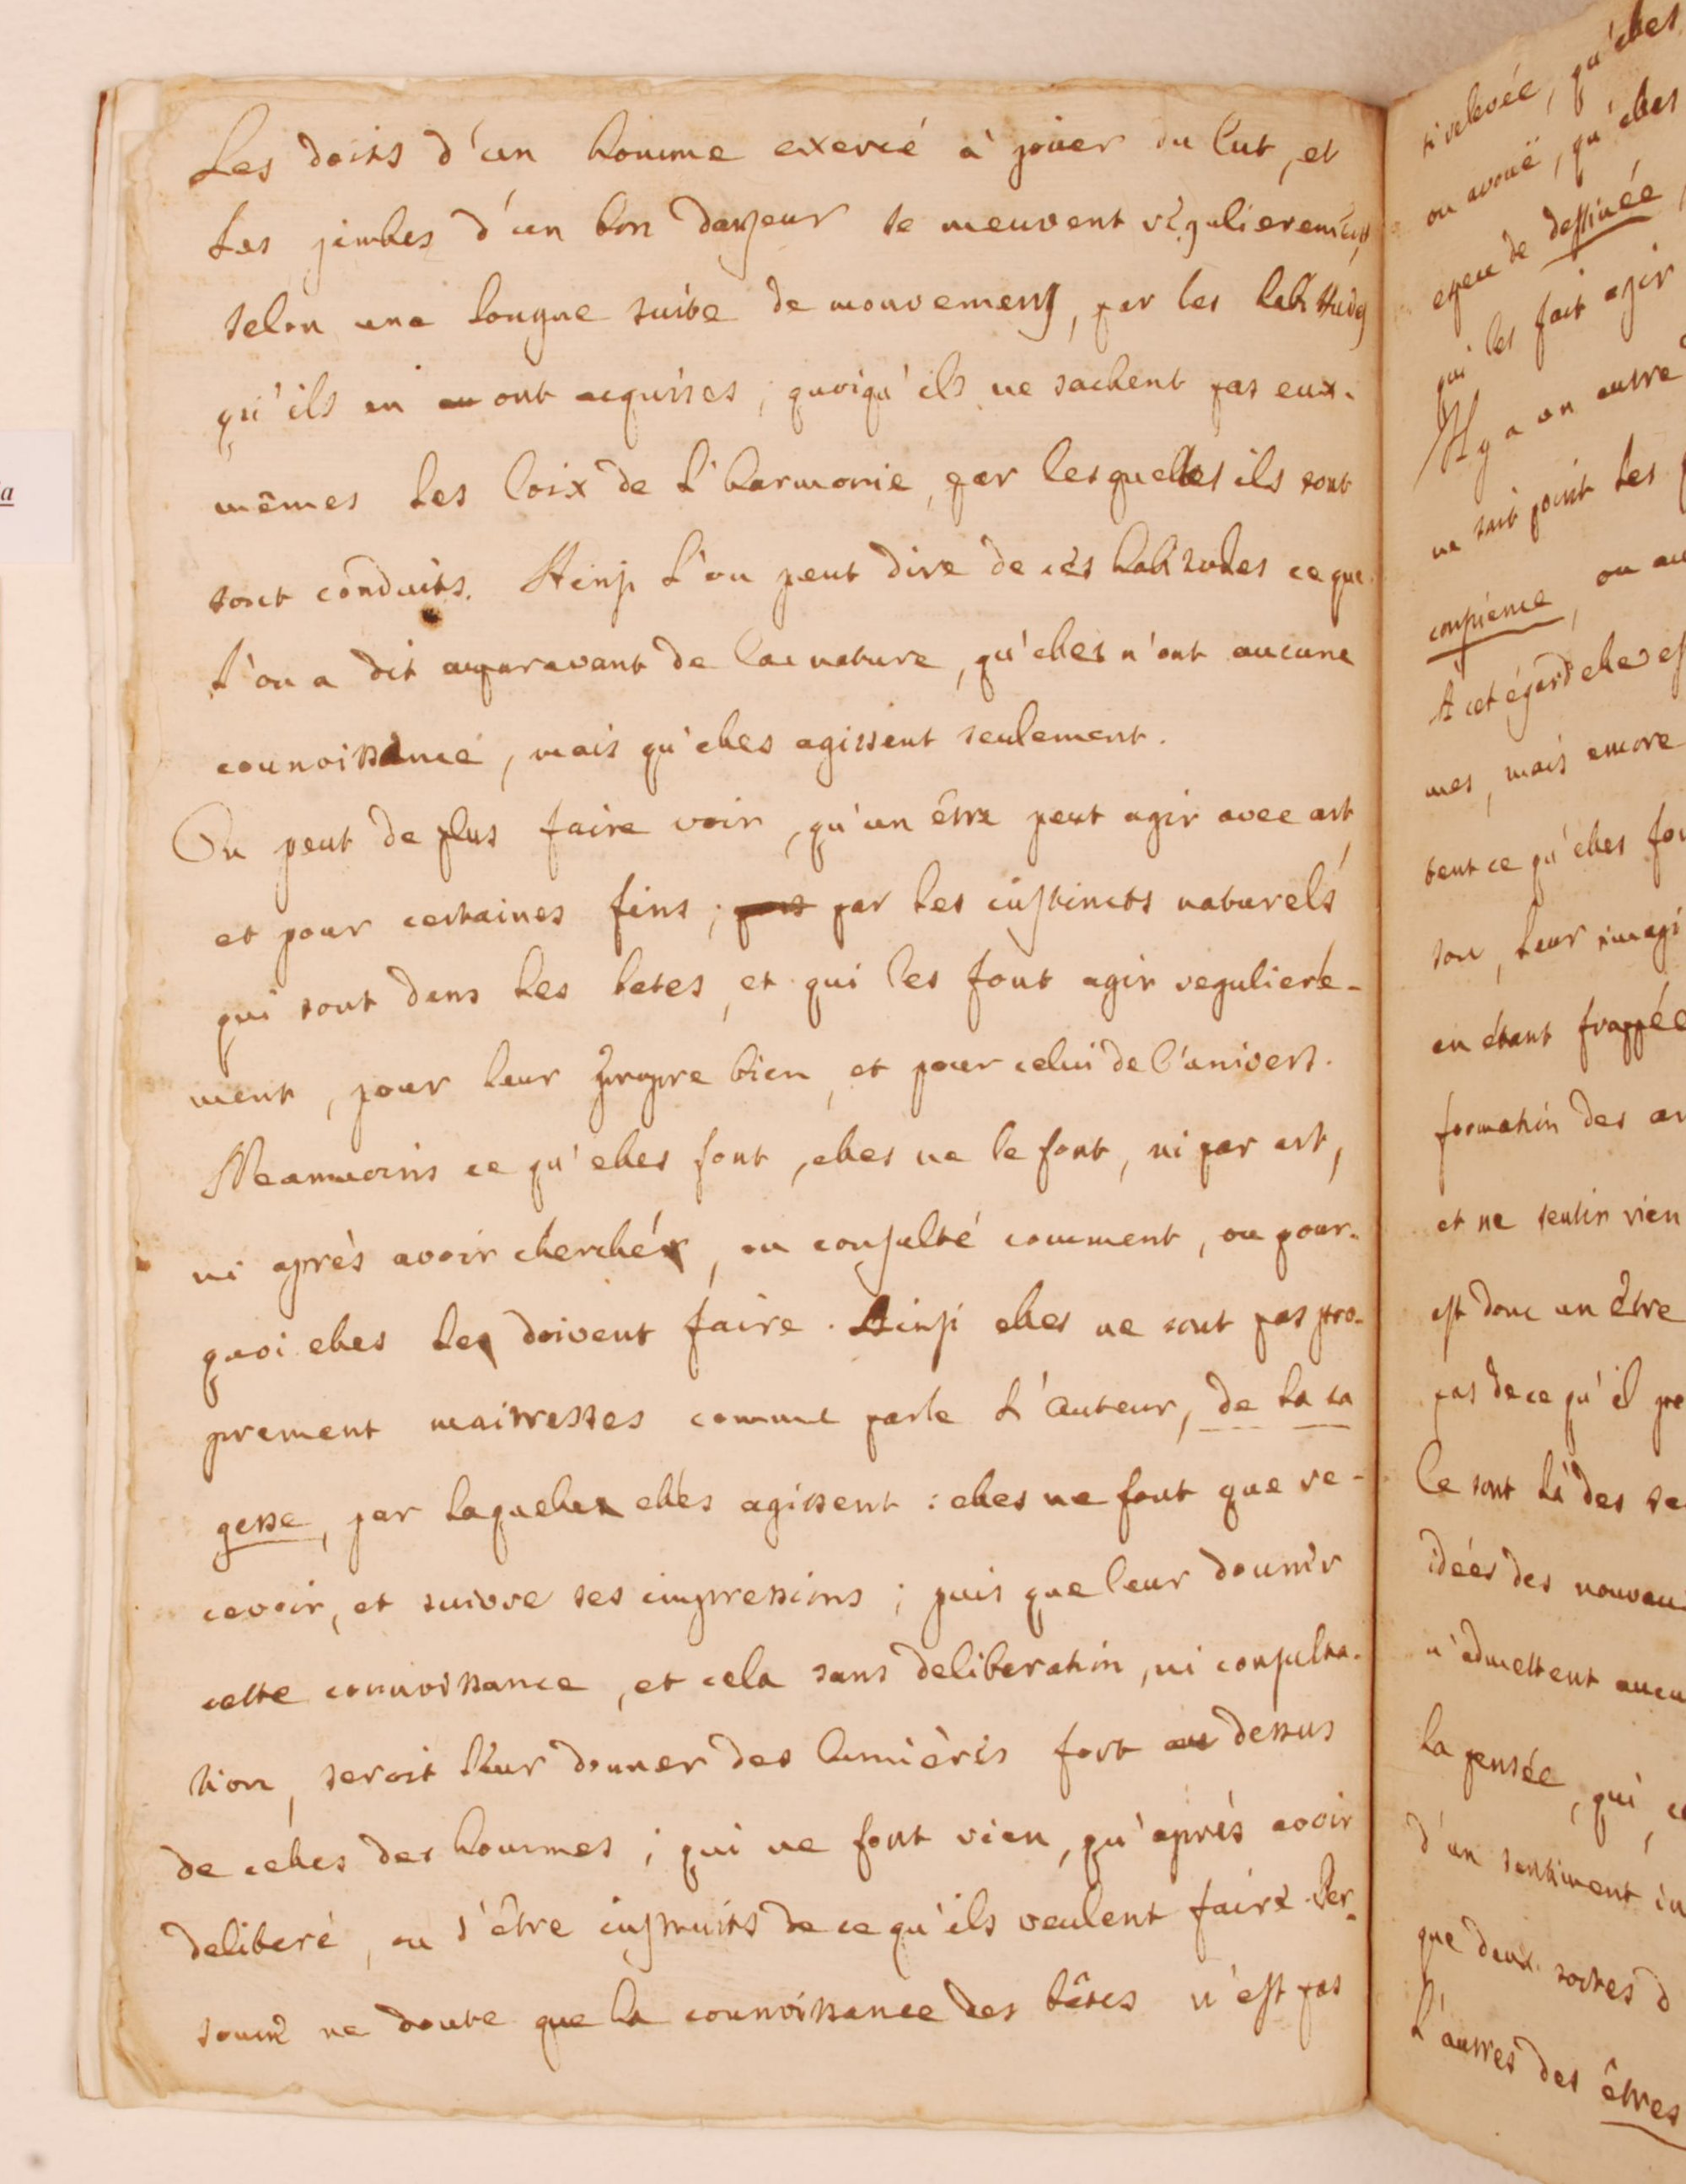 Les doits d'un homme exercé à joüer du lut, et
les jambes d'un bon danseur se meuvent régulierement,
selon une longue suite de mouvemens, par les habitudes
qu'ils en ont acquises; quoiqu'ils ne sachent pas eux-
mêmes les loix de l'harmonie, par lesquelles ils sont
sont conduits. Ainsi l'on peut dire de ces habitudes ce que
l'on a dit auparavant de la nature, qu'elles n'ont aucune
connoissance, mais qu'elles agissent seulement.
On peut de plus faire voir, qu'un être peut agir avec art,
et pour certaines fins; par les instincts naturels
qui sont dans les betes, et qui les font agir reguliere-
ment, pour leur propre bien, et pour celui de l'univers.
Neanmoins ce qu'elles font, elles ne le font, ni par art,
ni après avoir cherché, ou consulté comment, ou pour-
quoi elles le doivent faire. Ainsi elles ne sont pas pro-
prement maitresses comme parle l'Auteur, de la sa
gesse, par laquelle elles agissent: elles ne font que re-
cevoir, et suivre ses impressions; puis que leur donner
cette connoissance, et cela sans deliberation, ni consulta-
tion, seroit leur donner des lumières fort au dessus
de celles des hommes; qui ne font rien, qu'après avoir
deliberé, ou s'être instruits de ce qu'ils veulent faire. Per-
sonne ne doute que la connoissance des bêtes n'est pas
si relevée, qu'elles
on avoüe, qu'elles
espece de destinée,
qui les fait agir
Il y a un autre
ne sait point les
conscience, ou au
A cet égard elles
mes, mais encore
tent ce qu'elles
son, leur imagi
en étant frappée
formation des
et ne sentir rien
est donc un être
pas de ce qu'il
Ce sont là des
idées des nouveau
n'admettent aucu
la pensée, qui
d'un sentiment in
que deux sortes d
l'autres des êtres